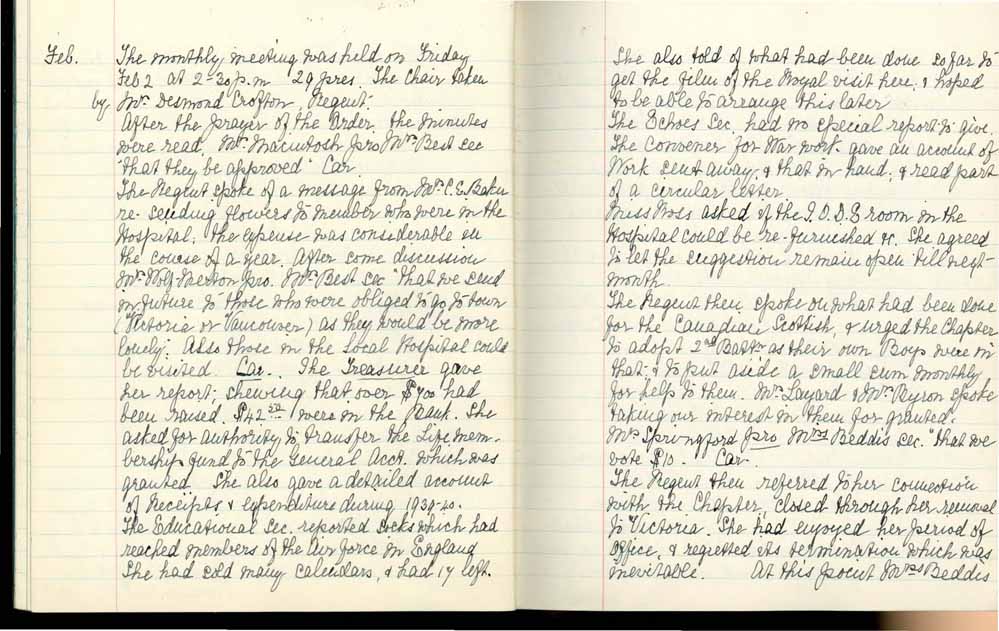 Feb. The monthly meeting was held on Friday
Feb 2 at 2-30 p.m 29 pres. The Chair taken
by Mrs Desmond Crofton, Regent.
After the prayer of the Order, the minutes
were read, Mrs Macintosh pro Mrs Best sec
"that they be approved" Car.
The Regent spoke of a message from Mrs C.E. Baker
re- sending flowers to member who were in the
Hospital, the expense was considerable in
the course of a year. After some discussion
Mrs Merton pro. Mrs Best sec "that we send
in future to those who were obliged to go to town
(Victoria or Vancouver) as they would be more
lonely. Also those in the local Hospital could
be visited. Car. The Treasurer gave
her report; shewing that over $700 had
been raised. $42 50 were in the Bank. She
asked for authority to transfer the Life mem-
bership fund to the General Acct. which was
granted. She also gave a detailed account
of Receipts & expenditure during 1939-40.
The Educational Sec. reported socks which had
reached members of the Air force in England
She had sold many calendars, & had 17 left.
She also told of what had been done so far to
get the films of the Royal visit here, & hoped
to be able to arrange this later
The Echoes Sec. had no special report to give.
The Convener for War work gave an account of
Work sent away, & that in hand, & read part
of a circular letter
Miss asked if the I.O.D.E room in the
Hospital could be re-furnished &c. She agreed
to let the suggestion remain open till next
month.
The Regent then spoke on what had been done
for the Canadian Scottish, & urged the Chapter
to adopt 2nd Battn as their own Boys were in
that; & to put aside a small sum monthly
for help to them. Mrs Layard & Mrs Byron spoke
taking our interest in them for granted.
Mrs Springford pro Mrs Beddis sec. "that we
vote $10. Car.
The Regent then referred to her connection
with the Chapter, closed through her removal
to Victoria. She had enjoyed her period of
Office, & regretted its termination which was
inevitable. At this point Mrs Beddis